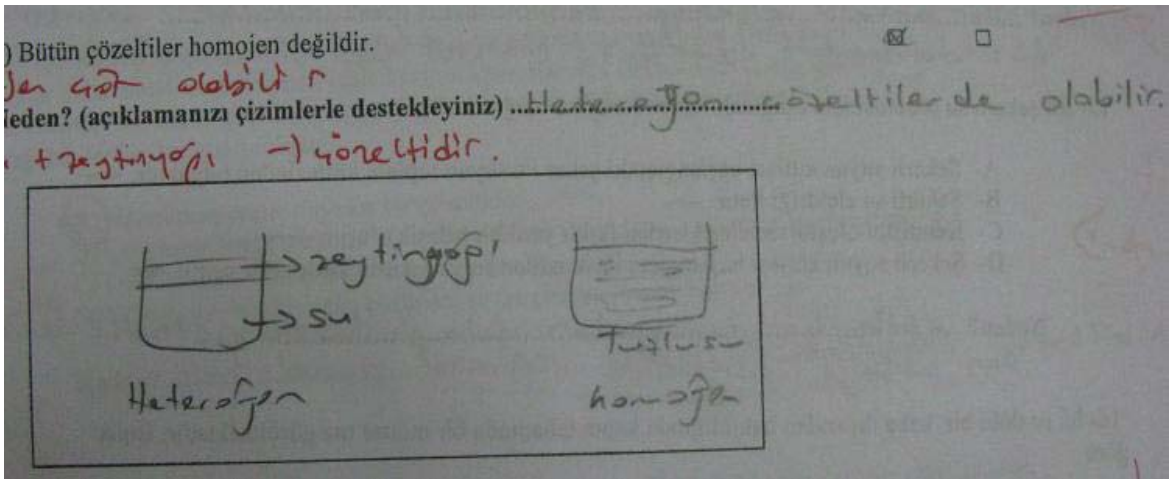 ) Bütün çözeltiler homojen değildir.
çöz olabilir
eden? (açıklamanızı çizimlerle destekleyiniz) .......Heterojen....... çözeltiler de olabilir.
+ zeytinyağı → çözeltidir.
→ zeytinyağı
→ su
Tuzlu su
Heteroğen homoğen